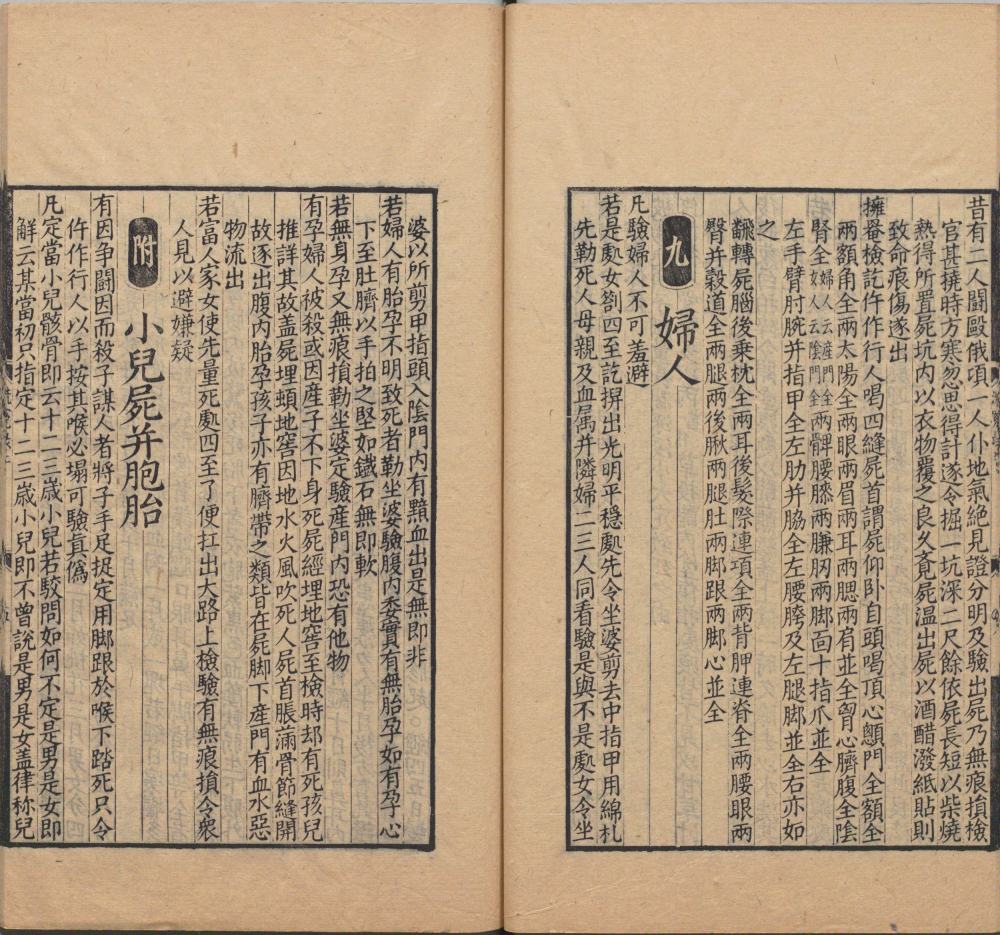 昔有二人鬬毆俄頃一人仆地氣絶見證分明及驗出屍乃無痕損檢
官甚撓時方寒忽思得計遂令掘一坑深二尺餘依屍長短以柴燒
熱得所置屍坑内以衣物覆之良久竟屍温出屍以酒醋潑紙貼則
致命痕傷遂出
擁罨檢訖仵作行人喝四縫屍首謂屍仰卧自頭喝頂心顖門全額全
兩額角全兩太陽全兩眼兩眉兩耳兩腮兩肩並全胷心臍腹全陰
腎全婦人云産門全女人云陰門全兩髀腰膝兩臁肕兩脚面十指爪並全
左手臂肘腕并指甲全左肋并脇全左腰胯及左腿脚並全右亦如
之
飜轉屍腦後乗枕全兩耳後髮際連項全兩背胛連脊全兩腰眼兩
臀并穀道全兩腿兩後䐐兩腿肚兩脚跟兩脚心並全
九 婦人
凡驗婦人不可羞避
若是處女劄四至訖舁出光明平穩處先令坐婆剪去中指甲用綿札
先勒死人母親及血属并隣婦二三人同看驗是與不是處女令坐
婆以所剪甲指頭入陰門内有黯血出是無即非
若婦人有胎孕不明致死者勒坐婆驗腹内委實有無胎孕如有孕心
下至肚臍以手拍之堅如鐵石無即軟
若無身孕又無痕損勒坐婆定驗産門内恐有他物
有孕婦人被殺或因産子不下身死屍經埋地窖至檢時却有死孩兒
推詳其故盖屍埋頓地窖因地水火風吹死人屍首脹滿骨節縫開
故逐出腹内胎孕孩子亦有臍帶之類皆在屍脚下産門有血水惡
物流出
若富人家女使先量死處四至了便扛出大路上檢驗有無痕損令衆
人見以避嫌疑
附 小兒屍并胞胎
有因争鬭因而殺子謀人者將子手足捉定用脚跟於喉下踏死只令
仵作行人以手按其喉必塌可驗真僞
凡定當小兒骸骨即云十二三歳小兒若駮問如何不定是男是女即
解云某當初只指定十二三歳小兒即不曾說是男是女盖律稱兒